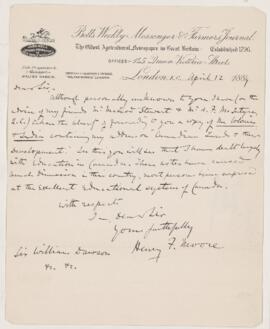 Bell's Weekly Messenger & Farmers' Journal.
The Oldest Agricultural Newspaper in Great Britain. Established 1796.
OFFICES: Queen Victoria Street
London, E.C. April 12 1889
Dear Sir
Although personally unknown to you I have (on the
advice of my friend Mr
when the of sending you a copy of The Colonies
& India containing my on Canadian & their
development. In this you will see that I have dealt largely
with Education in Canada. These notes have caused
much discussion in this country, most persons being surprised
at the excellent Educational system of Canada.
With respect
I am, Dear Sir
Yours faithfully
Henry F. Moore
Sir William Dawson
&c. &c.